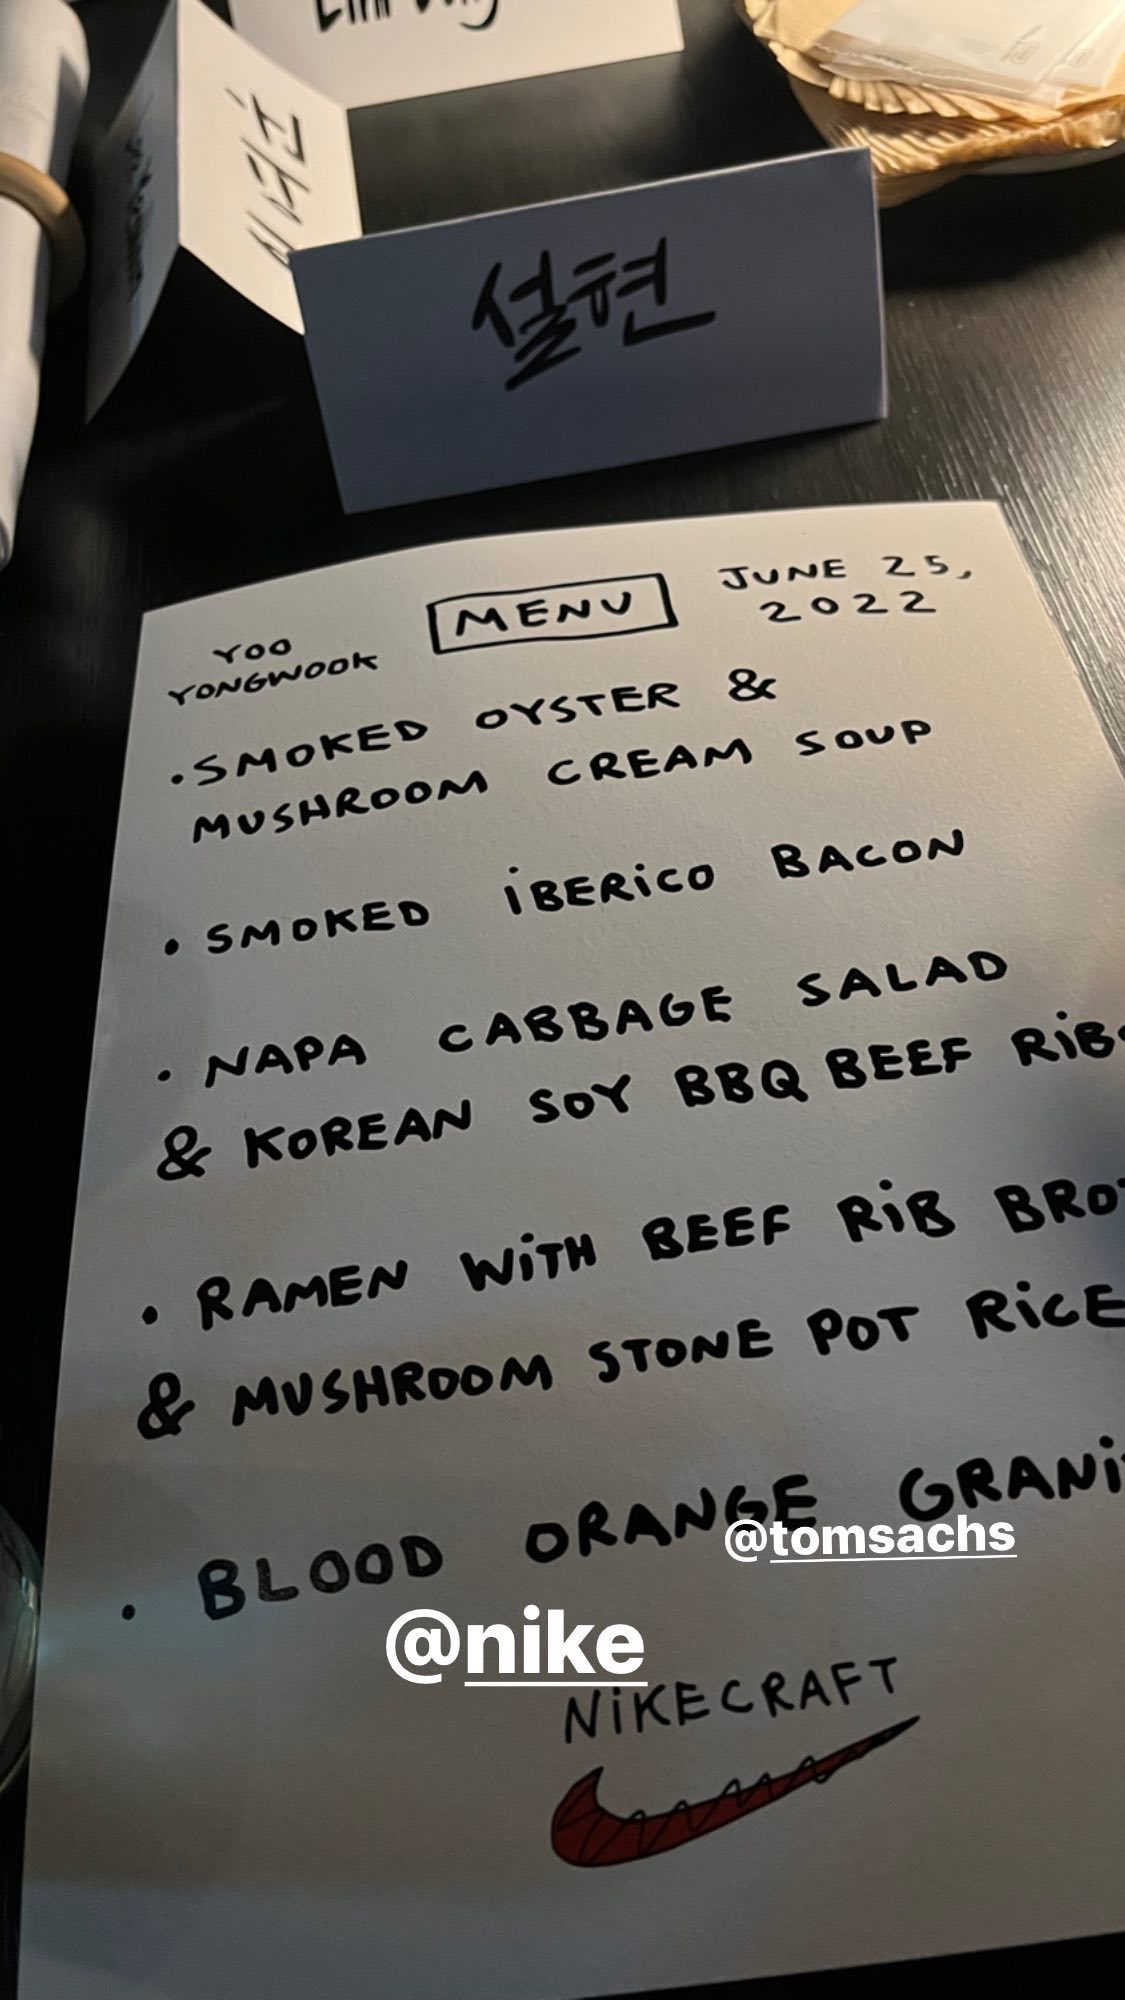 설현
MENU
JUNE 25,
2022
YOO
YONGWOOK
• SMOKED OYSTER &
MUSHROOM CREAM SOUP
• SMOKED iBERiCO BACON
• NAPA CABBAGE SALAD
& KOREAN SOY BBQ BEEF RiB
• RAMEN WiTH BEEF RiB BRO
& MUSHROOM STONE POT RiCE
• BLOOD ORANGE GRANi
@tomsachs
@nike
NiKECRAFT